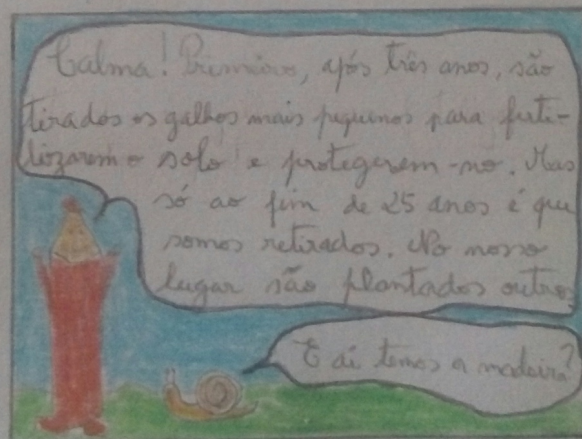 Calma! Primeiro, após três anos, são
tirados os galhos mais pequenos para ferti-
lizarem o solo e protegerem-no. Mas
só ao fim de 25 anos é que
somos retirados. No nosso
lugar são plantados outros
E aí temos a madeira?